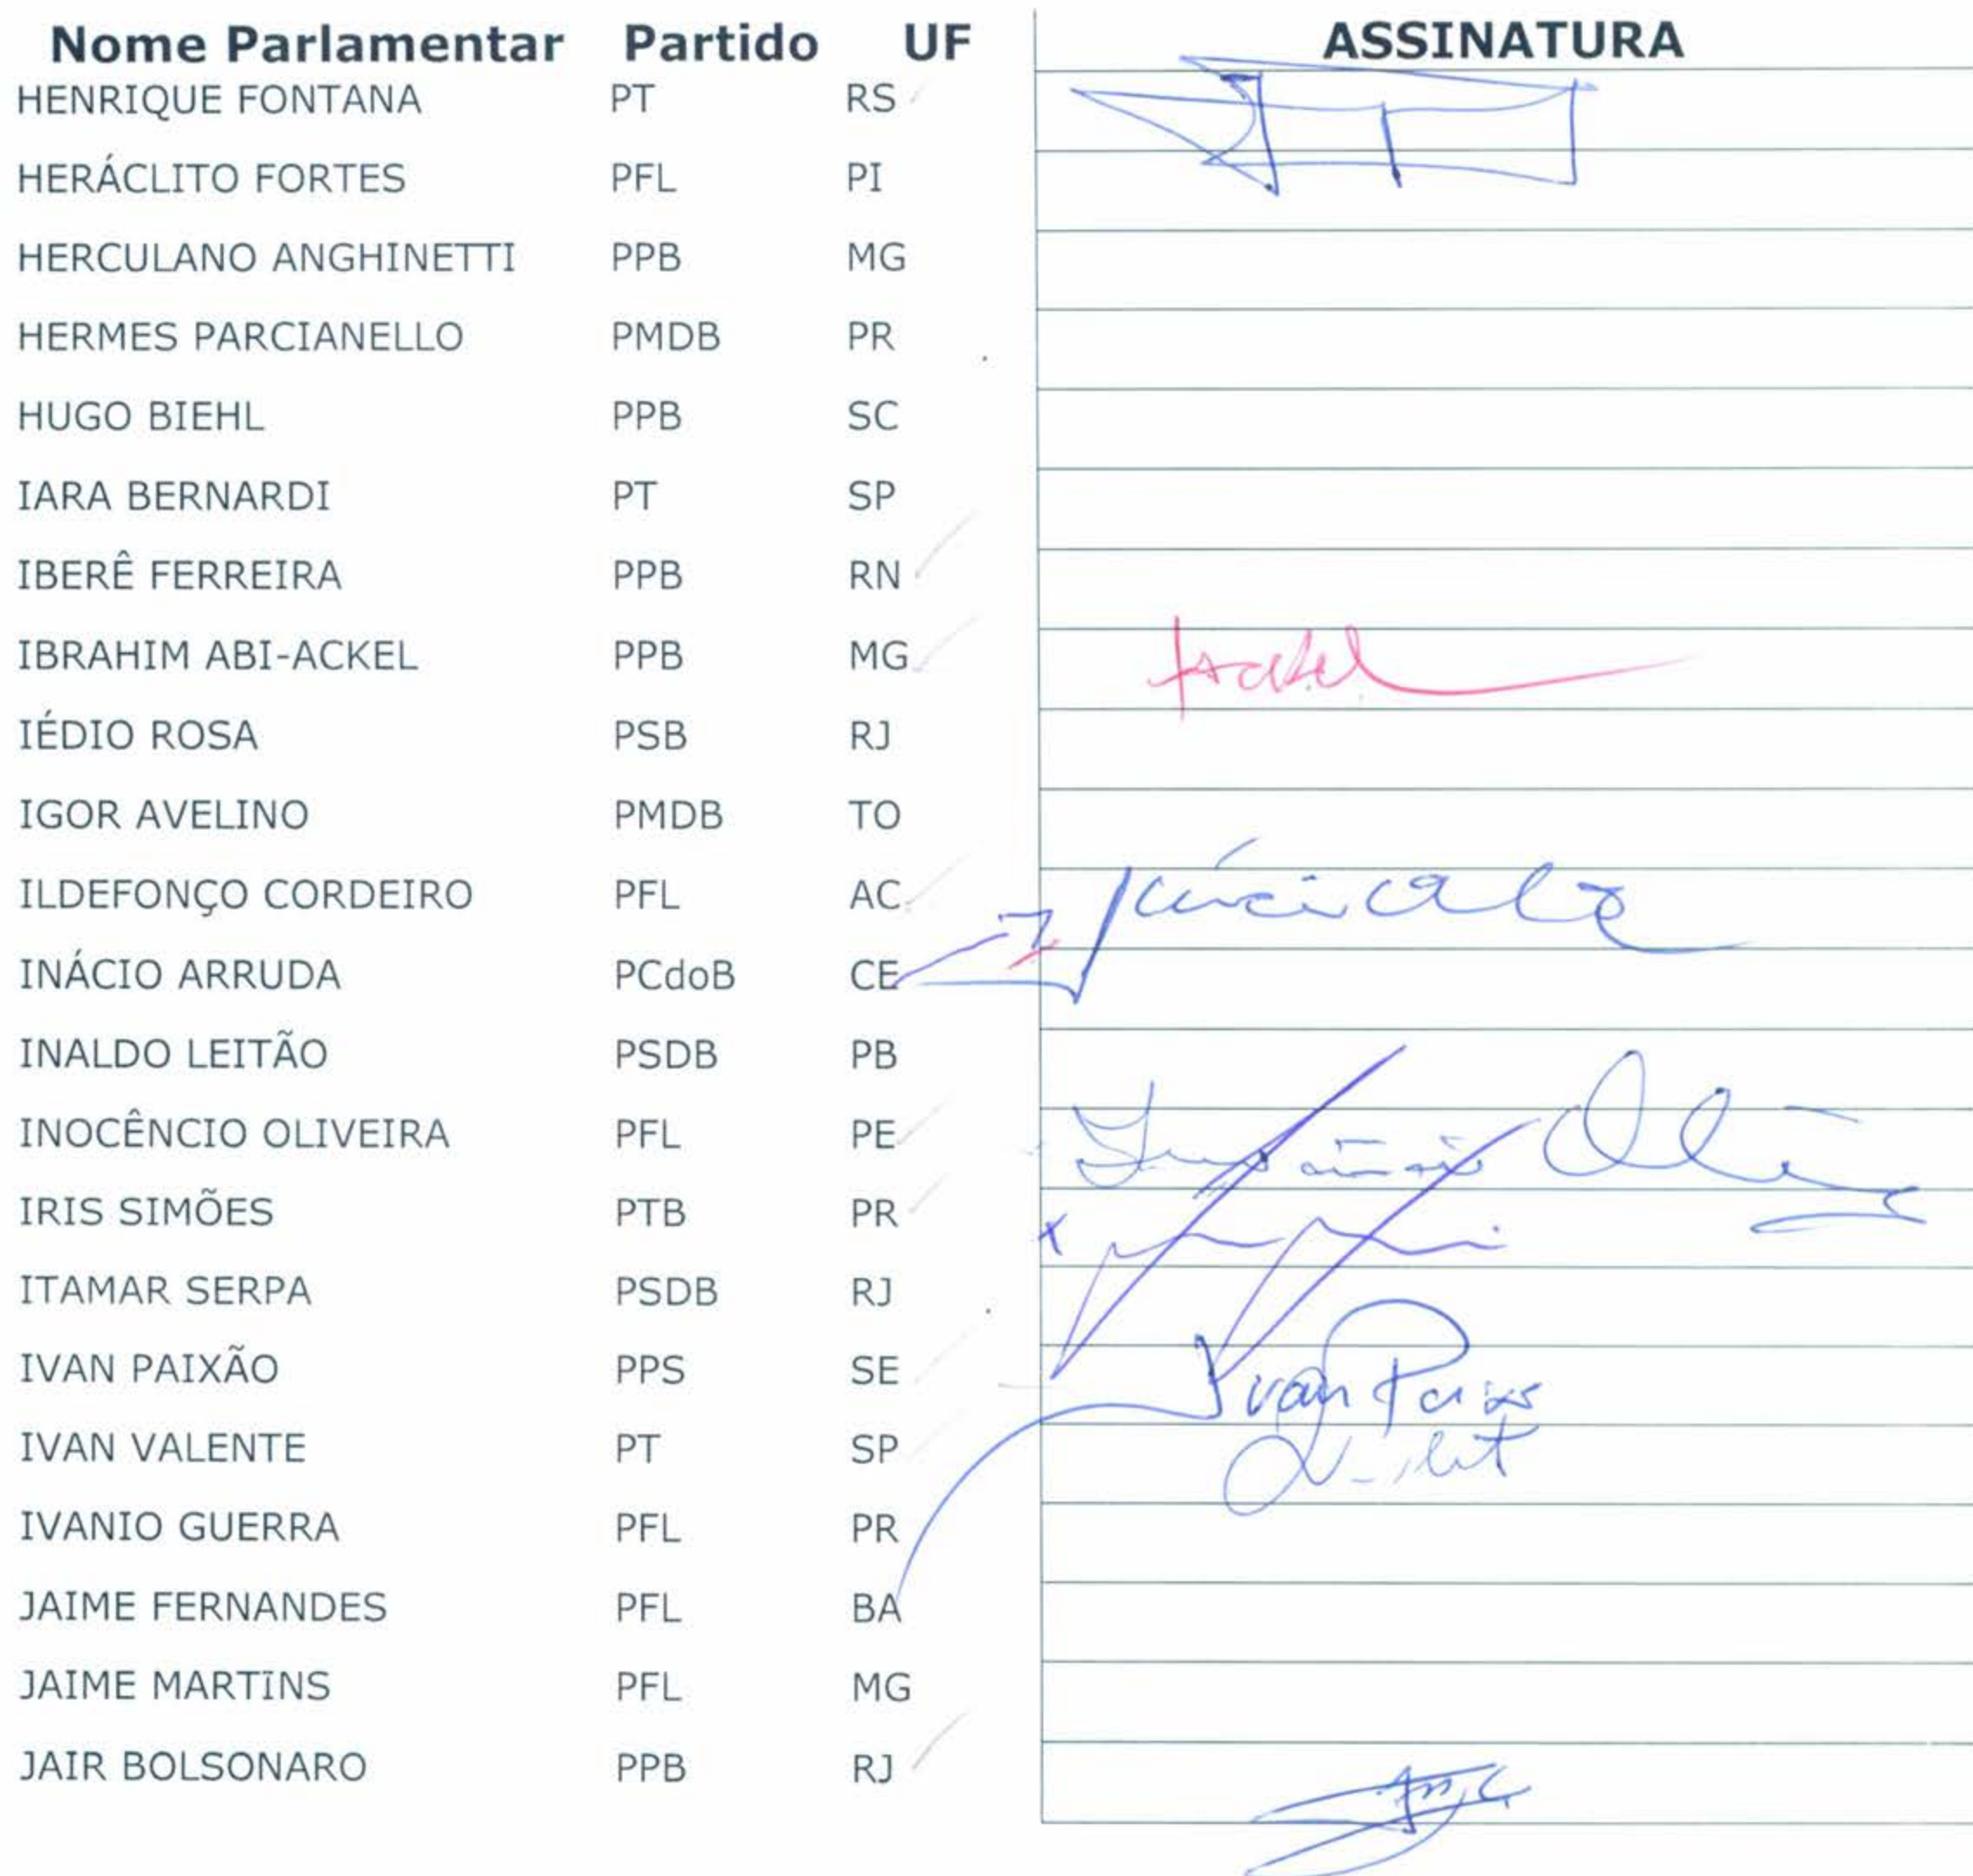 Nome Parlamentar Partido UF ASSINATURA
HENRIQUE FONTANA PT RS
HERÁCLITO FORTES PFL PI
HERCULANO ANGHINETTI PPB MG
HERMES PARCIANELLO PMDB PR
HUGO BIEHL PPB SC
IARA BERNARDI PT SP
IBERÊ FERREIRA PPB RN
IBRAHIM ABI-ACKEL PPB MG Ackel
IÉDIO ROSA PSB RJ
IGOR AVELINO PMDB TO
ILDEFONÇO CORDEIRO PFL AC
INÁCIO ARRUDA PCdoB CE
INALDO LEITÃO PSDB PB
INOCÊNCIO OLIVEIRA PFL PE
IRIS SIMÕES PTB PR
ITAMAR SERPA PSDB RJ
IVAN PAIXÃO PPS SE Ivan
IVAN VALENTE PT SP
IVANIO GUERRA PFL PR
JAIME FERNANDES PFL BA
JAIME MARTINS PFL MG
JAIR BOLSONARO PPB RJ